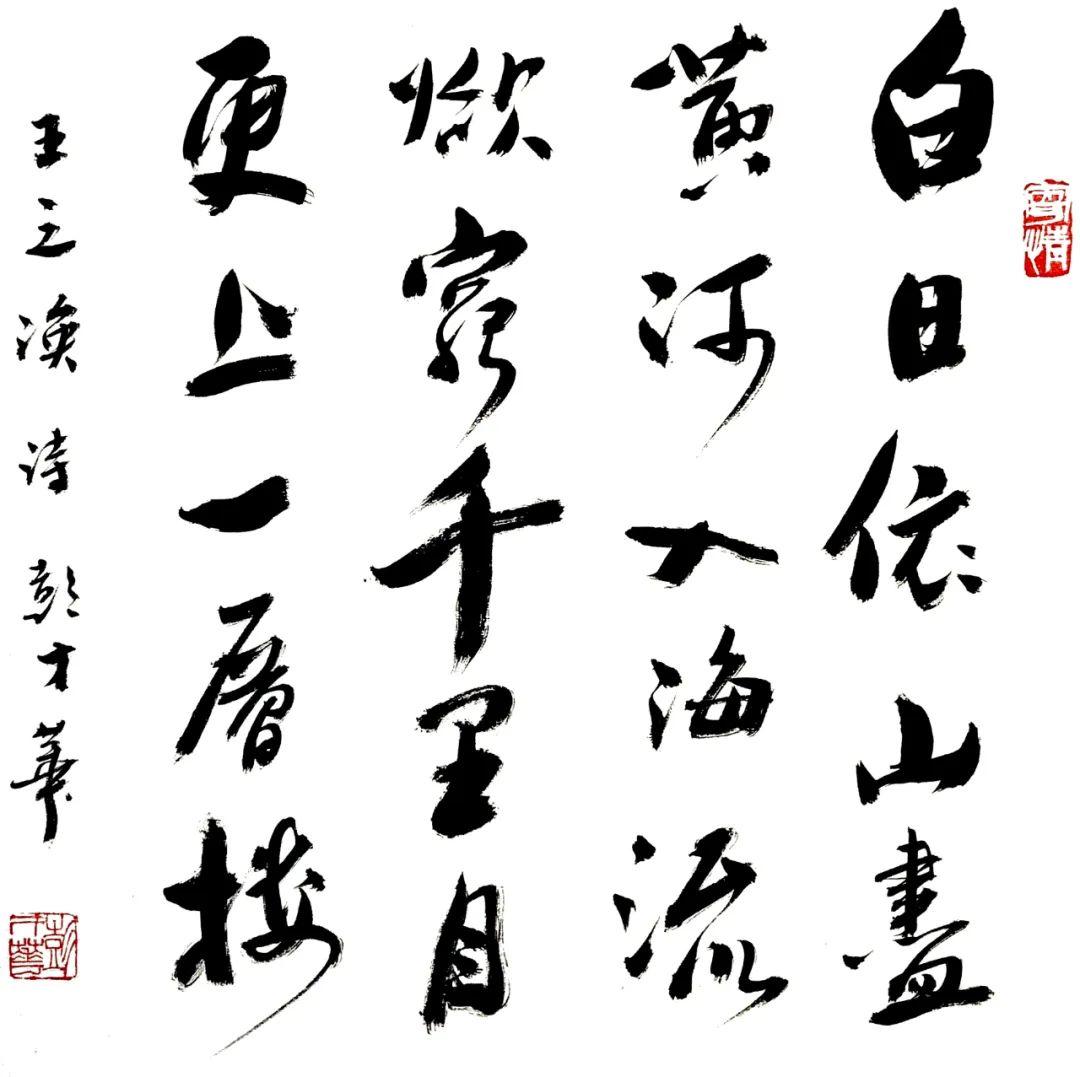 白日依山盡
黄河入海流
慾窮千里目
更上一層楼
王之渙诗 彭才華